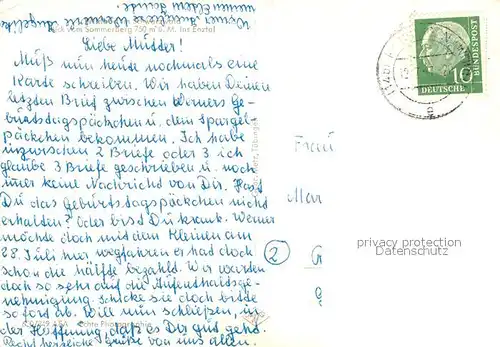 Blick vom Sommerberg 750 m ü. M. ins Enztal
Liebe Mutter!
Muß nun heute nochmals eine
Karte schreiben. Wir haben Deinen
letzten Brief zwischen Werners Ge-
burtstagspäckchen u. dem Spargel-
päckchen bekommen. Ich habe
inzwischen 2 Briefe oder 3 ich
glaube 3 Briefe geschrieben u. noch
immer keine Nachricht von Dir. Hast
Du das Geburtstagspäckchen nicht
erhalten? Oder bist Du krank. Werner
möchte doch mit dem Kleinen am
28. Juli hier wegfahren er hat doch
schon die hälfte bezahlt. Wir warten
doch so sehr auf die Aufenthaltsge-
nehmigung. Schicke sie doch bitte
sofort ab. Will nun schließen, in
der Hoffnung, daß es Dir gut geht.
Recht herzliche Grüße von uns allen.
Echte Photographie
Tübingen
Frau
Mar
2
DEUTSCHE
BUNDESPOST
10
privacy protection
Datenschutz